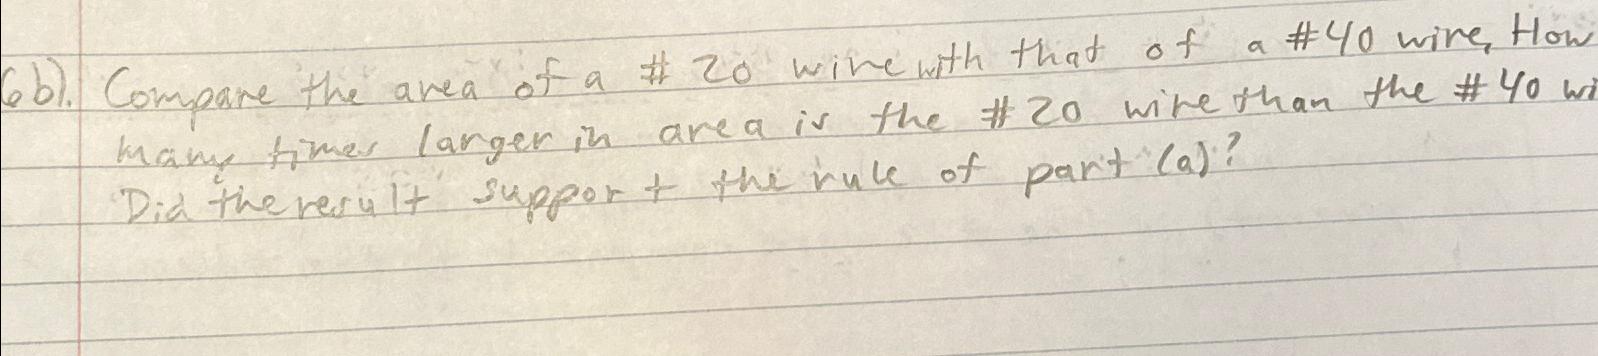 6b). Compare the area of a # 20 wire with that of a #40 wire, How
many times larger in area is the #20 wire than the #40 wi
Did the result support the rule of part (a)?